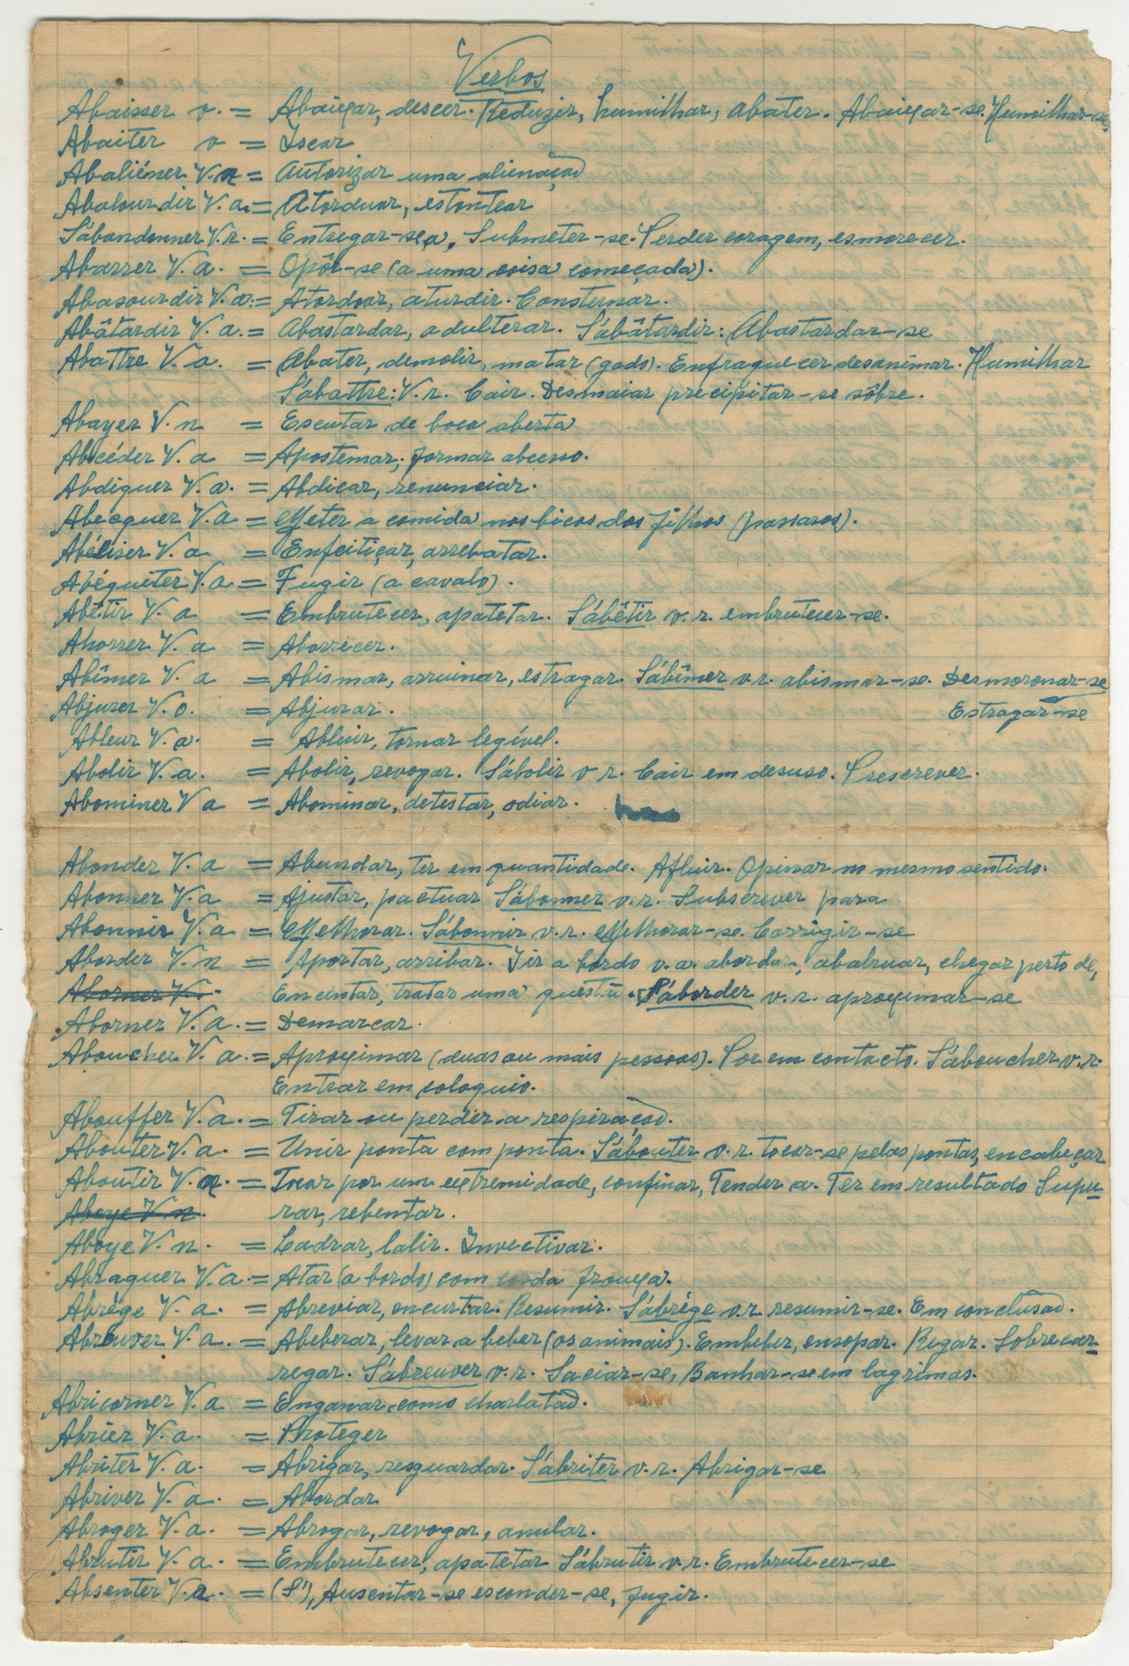 Verbos
Abaisser v. = Abaixar, descer. Reduzir, humilhar, abater. Abaixar-se. Humilhar-se
Abaiter v = Iscar
Abaliéner V. n = Autorizar uma alienação
Abalourdir V. a. = Atorduar, estontear
S'ábandonner V. r. = Entregar-se a, Submeter-se. Perder coragem, esmorecer.
Abarrer V. a. = Opôr-se (a uma coisa começada).
Abasourdir V. a. = Atordoar, aturdir. Consternar.
Abâtardir V. a. = Abastardar, adulterar. S'ábâtardir: Abastardar-se
Abattre V. a. = Abater, demolir, matar (gado). Enfraquecer desanimar. Humilhar
S'abattre: V. r. Cair. Desmaiar precipitar-se sôbre.
Abayer V. n = Escutar de boca aberta
Abcéder V. a = Apostemar, formar abcesso.
Abdiquer V. a. = Abdicar, renunciar.
Abecquer V. a = Meter a comida nos bicos dos filhos (passaros).
Abéliser V. a = Enfeitiçar, arrebatar.
Abéqueter V. a = Fugir (a cavalo).
Abêtir V. a = Embrutecer, apatetar. S'ábêtir v. r. embrutecer-se.
Ahorrer V. a = Aborrecer.
Abîmer V. a = Abismar, arruinar, estragar. S'ábîmer v. r. abismar-se. Desmoronar-se
Abjurer V. a. = Abjurar. Estragar-se
Ableur V. a. = Abluir, tornar legível.
Abolir V. a. = Abolir, revogar. S'ábolir v r. Cair em desuso. Prescrever.
Abominer V a = Abominar, detestar, odiar.
Abonder V. a = Abundar, ter em quantidade. Afluir. Opinar no mesmo sentido.
Abonner V. a = Ajustar, pactuar S'ábonner v. r. Subscrever para
Abonnir V. a = Melhorar. S'ábonnir v. r. Melhorar-se. Corrigir-se
Aborder V. n = Aportar, arribar. Ir a bordo v. a. abordar, abalruar, chegar perto de,
Aborner V. Encintar, tratar uma questã. S'áborder v. r. aproximar-se
Aborner V. a. = Demarcar.
Aboucher V. a. = Aproximar (duas ou mais pessoas). Por em contacto. S'áboucher v. r.
Entrar em coloquio.
Abouffer V. a. = Tirar ou perder a respiração.
Abouter V. a. = Unir ponta com ponta. S'ábouter v. r. tocar-se pelas pontas, encabeçar
Aboutir V. n. = Tocar por um extremidade, confinar, Tender a. Ter em resultado Supu-
Aboye V n. rar, rebentar.
Aboye V. n. = Ladrar, latir. Invectivar.
Abraquer V. a. = Atar (a bordo) com corda frouxa.
Abrége V. a. = Abreviar, encurtar. Resumir. S'ábrége v. r. resumir-se. Em conclusão.
Abreuver V. a. = Abeberar, levar a beber (os animais). Embeber, ensopar. Regar. Sobrecar-
regar. S'ábreuver v. r. Saciar-se, Banhar-se em lagrimas.
Abricorner V. a = Enganar como charlatão.
Abrier V. a. = Proteger
Abriter V. a. = Abrigar, resguardar. S'ábriter v. r. Abrigar-se
Abriver V. a. = Abordar
Abroger V. a. = Abrogar, revogar, anular.
Abrutir V. a. = Embrutecer, apatetar S'ábrutir v. r. Embrutecer-se
Absenter V. r. = (S'), Ausentar-se esconder-se, fugir.